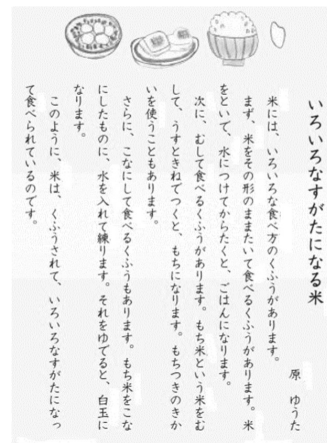 いろいろなすがたになる米
原　ゆうた
米には、いろいろな食べ方のくふうがあります。
まず、米をその形のままたいて食べるくふうがあります。米
をといで、水につけてからたくと、ごはんになります。
次に、むして食べるくふうがあります。もち米という米をむ
して、うすときねでつくと、もちになります。もちつきのきか
いを使うこともあります。
さらに、こなにして食べるくふうもあります。もち米をこな
にしたものに、水を入れて練ります。それをゆでると、白玉に
なります。
このように、米は、くふうされて、いろいろなすがたになっ
て食べられているのです。